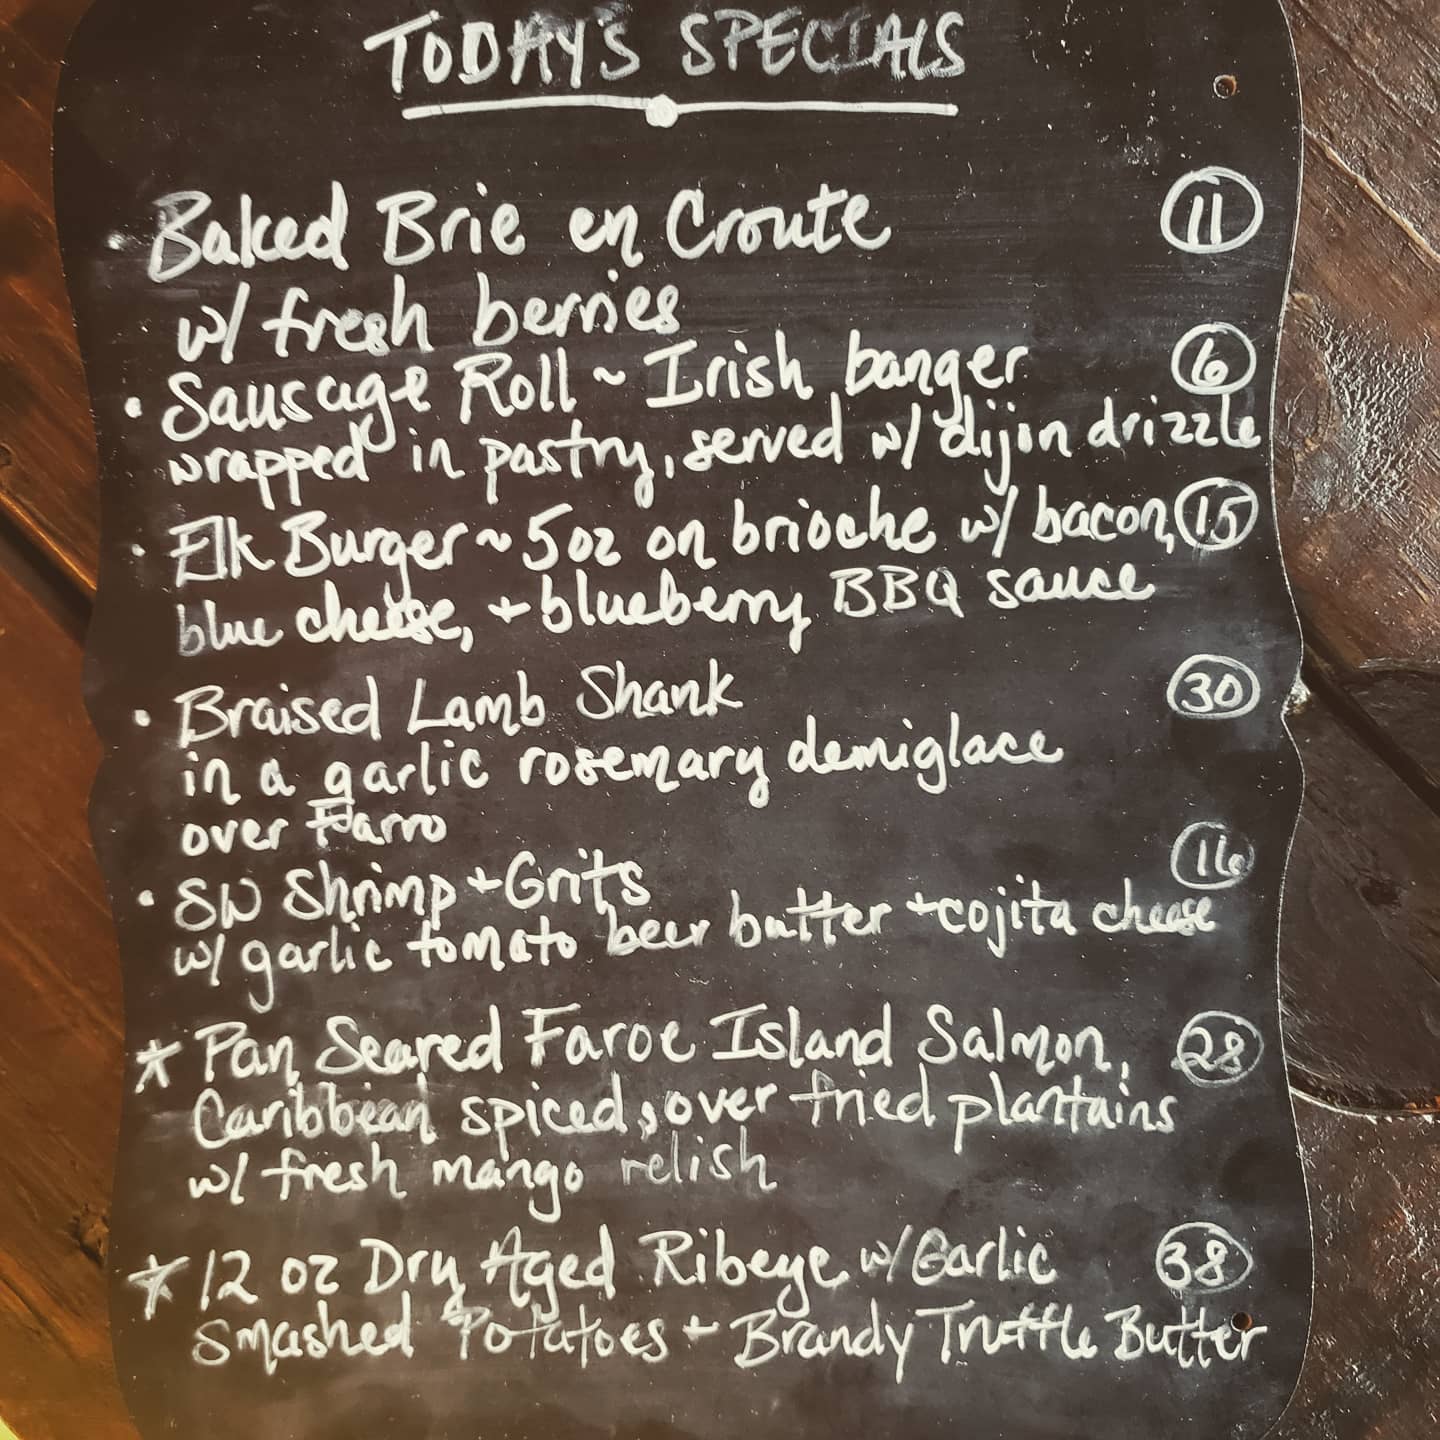 TODAY'S SPECIALS
• Baked Brie en Croute 11
w/ fresh berries
• Sausage Roll ~ Irish banger 6
wrapped in pastry, served w/ dijon drizzle
• Elk Burger ~ 5oz on brioche w/ bacon, 15
blue cheese, + blueberry BBQ sauce
• Braised Lamb Shank 30
in a garlic rosemary demiglace
over Farro
• SW Shrimp + Grits 16
w/ garlic tomato beer butter + cojita cheese
* Pan Seared Faroe Island Salmon, 28
Caribbean spiced, over fried plantains
w/ fresh mango relish
* 12 oz Dry Aged Ribeye w/ Garlic 38
Smashed Potatoes + Brandy Truffle Butter